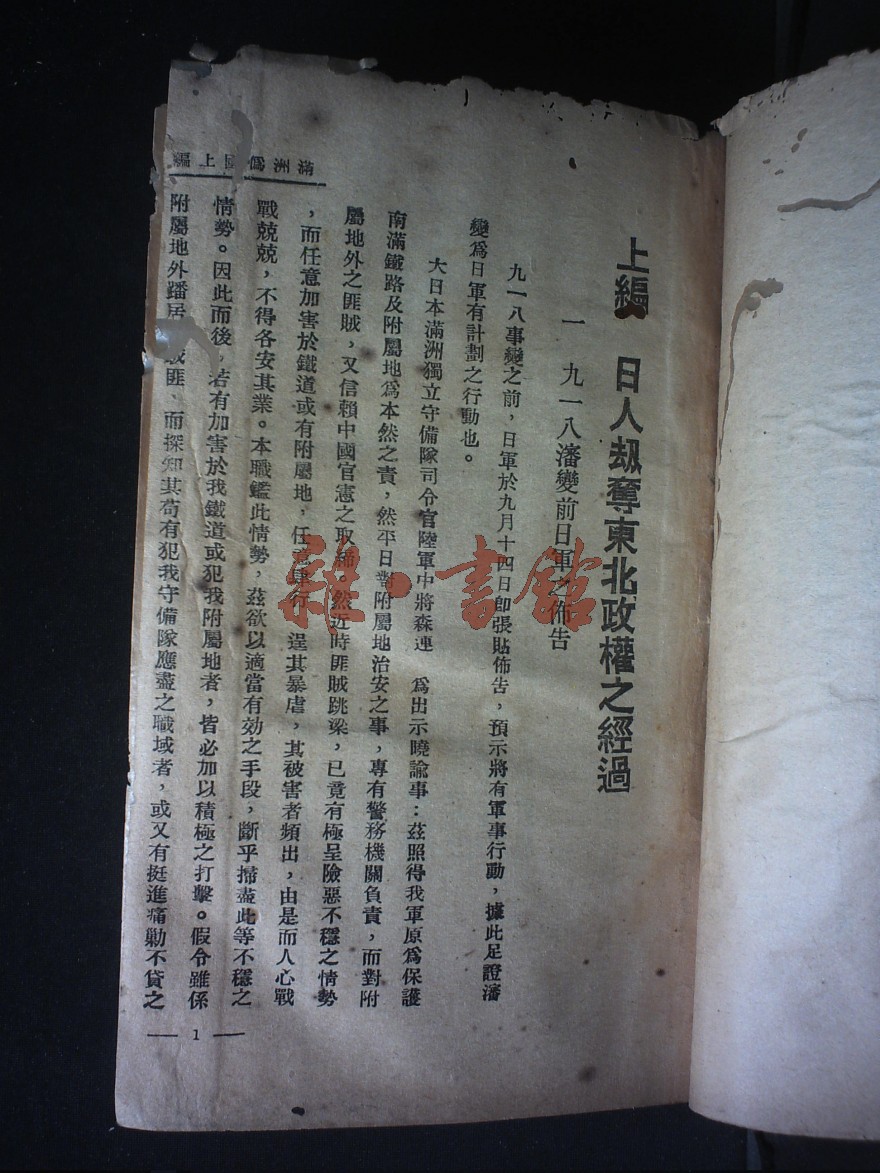 滿洲僞國上編
上編 日人刼奪東北政權之經過
一 九一八瀋變前日軍之佈告
九一八事變之前，日軍於九月十四日卽張貼佈告，預示將有軍事行動，據此足證瀋
變爲日軍有計劃之行動也。
大日本滿洲獨立守備隊司令官陸軍中將森連 爲出示曉諭事：茲照得我軍原爲保護
南滿鐵路及附屬地爲本然之責，然平日對附屬地治安之事，專有警務機關負責，而對附
屬地外之匪賊，又信賴中國官憲之取締。然近時匪賊跳梁，已竟有極呈險惡不穩之情勢
，而任意加害於鐵道或有附屬地，任意 行 逞其暴虐，其被害者頻出，由是而人心戰
戰兢兢，不得各安其業。本職鑑此情勢，茲欲以適當有効之手段，斷乎掃盡此等不穩之
情勢。因此而後，若有加害於我鐵道或犯我附屬地者，皆必加以積極之打擊。假令雖係
附屬地外蹯居 匪，而探知其苟有犯我守備隊應盡之職域者，或又有挺進痛勦不貸之
— 1 —
雜·書館